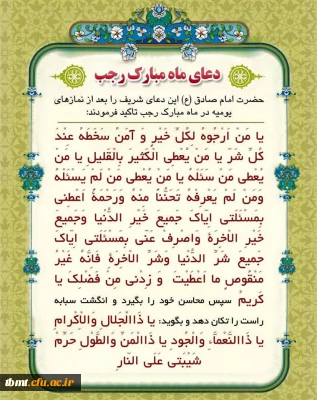 دعای ماه مبارک رجب
حضرت امام صادق (ع) این دعای شریف را بعد از نمازهای
یومیه در ماه مبارک رجب تاکید فرمودند:
یا مَن اَرجُوهُ لِکُلِّ خَیرٍ وَ آمَنُ سَخَطَهُ عِندَ
کُلِّ شَرٍّ یا مَن یُعطِی الکَثیرَ بِالقَلیلِ یا مَن
یُعطی مَن سَئَلَهُ یا مَن یُعطی مَن لَم یَسئَلهُ
وَمَن لَم یَعرِفهُ تَحَنُّنًا مِنهُ وَرَحمَةً اَعطِنی
بِمَسئَلَتی اِیّاکَ جَمیعَ خَیرِ الدُّنیا وَجَمیعَ
خَیرِ الاخِرَةِ وَاصرِف عَنّی بِمَسئَلَتی اِیّاکَ
جَمیعَ شَرِّ الدُّنیا وَشَرِّ الاخِرَةِ فَاِنَّهُ غَیرُ
مَنقُوصٍ ما اَعطَیتَ وَ زِدنی مِن فَضلِکَ یا
کَریمُ سپس محاسن خود را بگیرد و انگشت سبابه
راست را تکان دهد و بگوید: یا ذَاالجَلالِ وَالاِکرامِ
یا ذَاالنَّعماءِ وَالجُودِ یا ذَاالمَنِّ وَالطَّولِ حَرِّم
شَیبَتی عَلَی النّارِ
tbmt.cfu.ac.ir